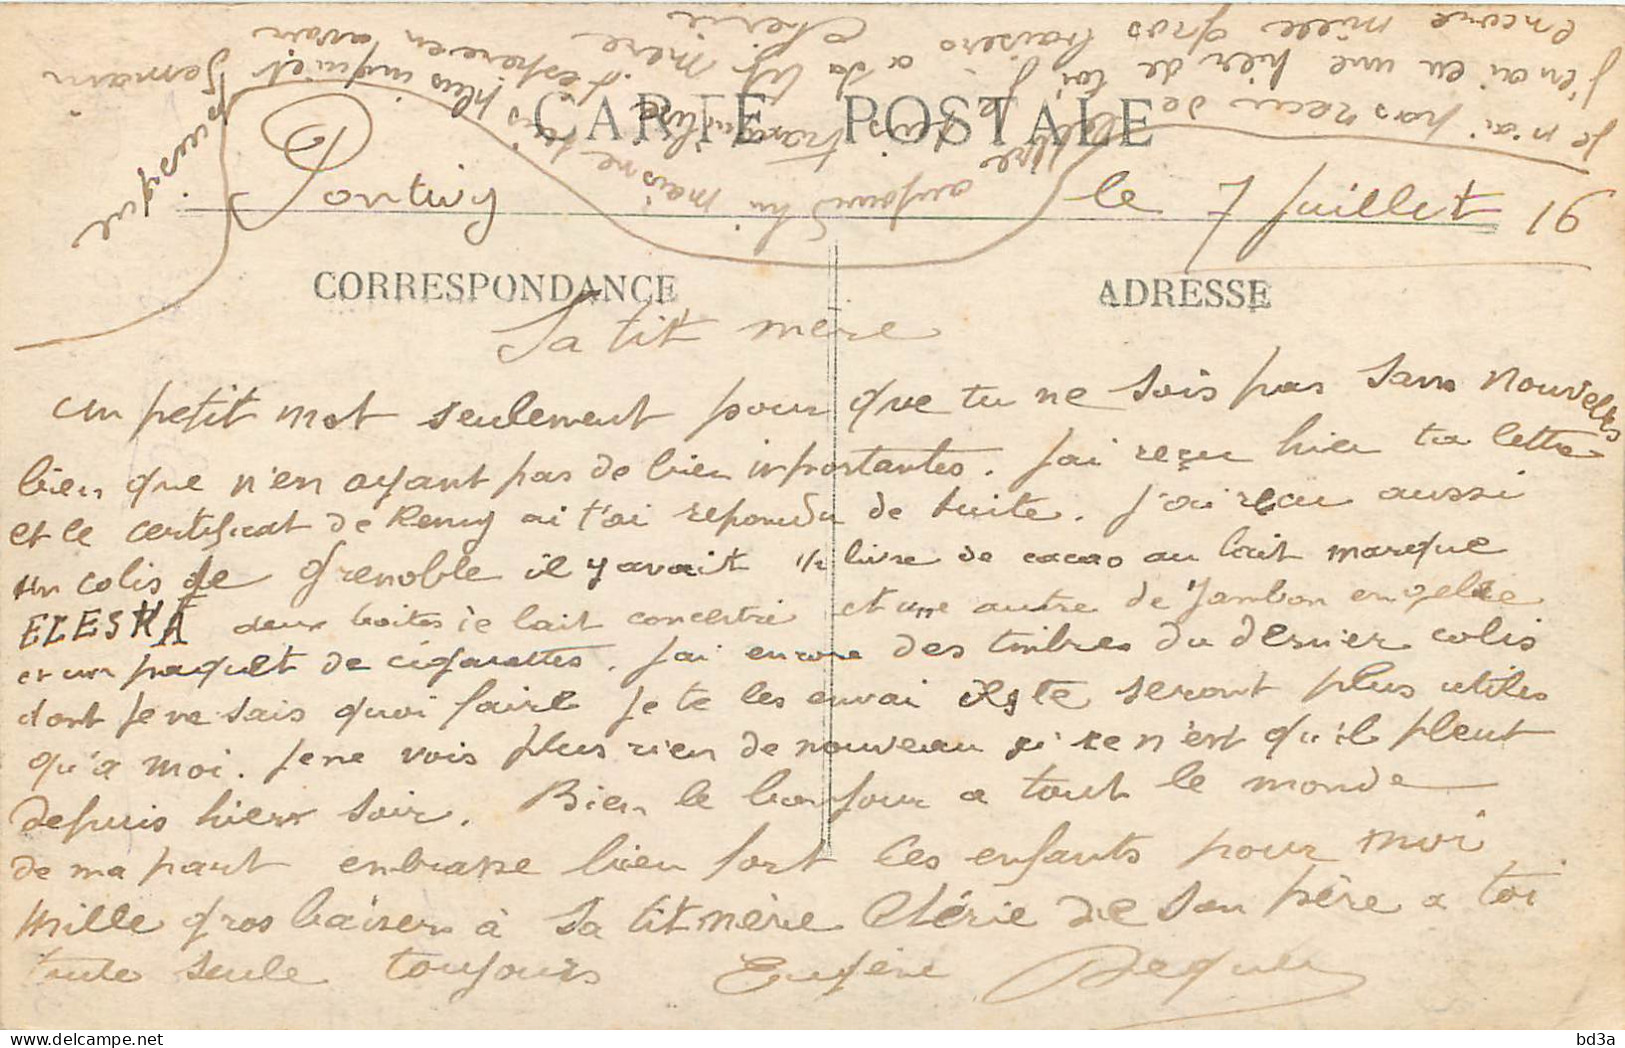 CARTE POSTALE
Pontivy le 7 Juillet 16
CORRESPONDANCE
ADRESSE
Sa tit mère
un petit mot seulement pour que tu ne sois pas sans nouvelles
bien que n'en ayant pas de bien importantes. J'ai reçu hier ta lettre
et le certificat de Remy ai t'ai repondu de suite. J'ai reçu aussi
un colis de Grenoble il y avait 1/2 livre de cacao au lait marque
ELESKA deux boites de lait concentré et une autre de Jambon en gelée
et un paquet de cigarettes. J'ai encore des timbres du dernier colis
dont je ne sais quoi faire je te les envai ils te seront plus utiles
qu'a moi. Je ne vois plus rien de nouveau si ce n'est qu'il pleut
depuis hier soir. Bien le bonjour a tout le monde
de ma part embrasse bien fort les enfants pour moi
mille gros baisers à sa tit mère chérie de son père a toi
toute seule toujours Eugène
Je n'ai pas recu de
aujourd'hui mais ne sois plus inquiet
puisque
j'en ai eu une hier de toi je suis tranquille j'espere en avoir demain
encore mille gros baisers a sa tit mère cherie
bd3a